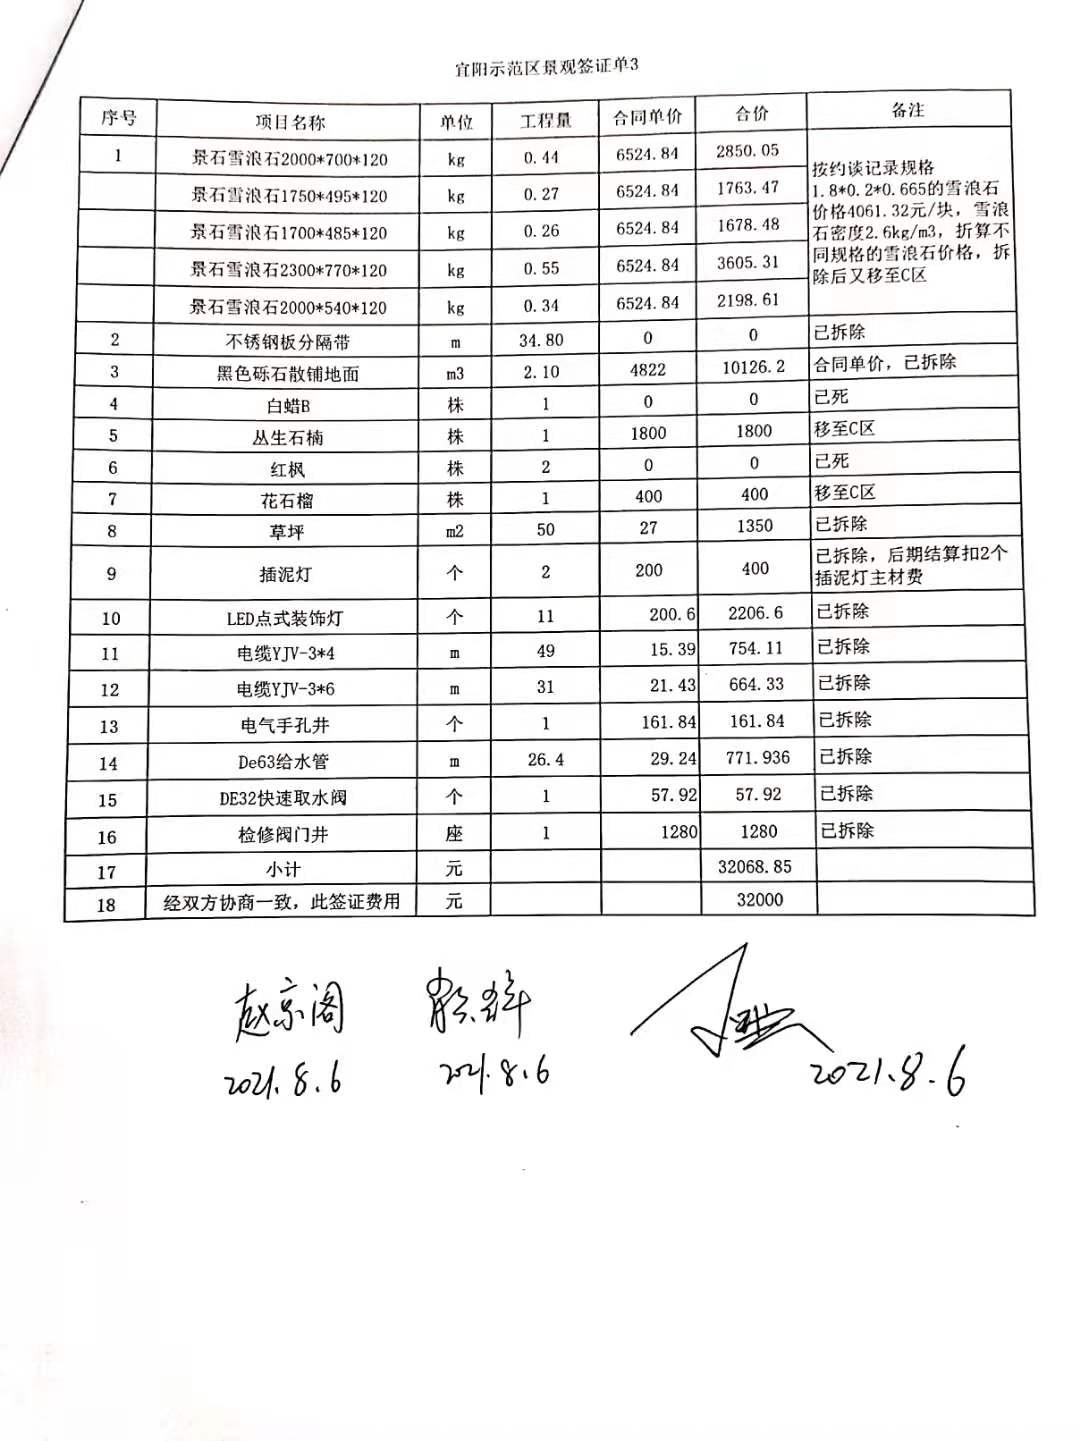 宜阳示范区景观签证单3
序号 项目名称 单位 工程量 合同单价 合价 备注
1 景石雪浪石2000*700*120 kg 0.44 6524.84 2850.05
景石雪浪石1750*495*120 kg 0.27 6524.84 1763.47
景石雪浪石1700*485*120 kg 0.26 6524.84 1678.48
景石雪浪石2300*770*120 kg 0.55 6524.84 3605.31
景石雪浪石2000*540*120 kg 0.34 6524.84 2198.61
按约谈记录规格
1.8*0.2*0.665的雪浪石
价格4061.32元/块，雪浪
石密度2.6kg/m3，折算不
同规格的雪浪石价格，拆
除后又移至C区
2 不锈钢板分隔带 m 34.80 0 0 已拆除
3 黑色砾石散铺地面 m3 2.10 4822 10126.2 合同单价，已拆除
4 白蜡B 株 1 0 0 已死
5 丛生石楠 株 1 1800 1800 移至C区
6 红枫 株 2 0 0 已死
7 花石榴 株 1 400 400 移至C区
8 草坪 m2 50 27 1350 已拆除
9 插泥灯 个 2 200 400 已拆除，后期结算扣2个
插泥灯主材费
10 LED点式装饰灯 个 11 200.6 2206.6 已拆除
11 电缆YJV-3*4 m 49 15.39 754.11 已拆除
12 电缆YJV-3*6 m 31 21.43 664.33 已拆除
13 电气手孔井 个 1 161.84 161.84 已拆除
14 De63给水管 m 26.4 29.24 771.936 已拆除
15 DE32快速取水阀 个 1 57.92 57.92 已拆除
16 检修阀门井 座 1 1280 1280 已拆除
17 小计 元 32068.85
18 经双方协商一致，此签证费用 元 32000
赵京阁
2021.8.6 2021.8.6 2021.8.6